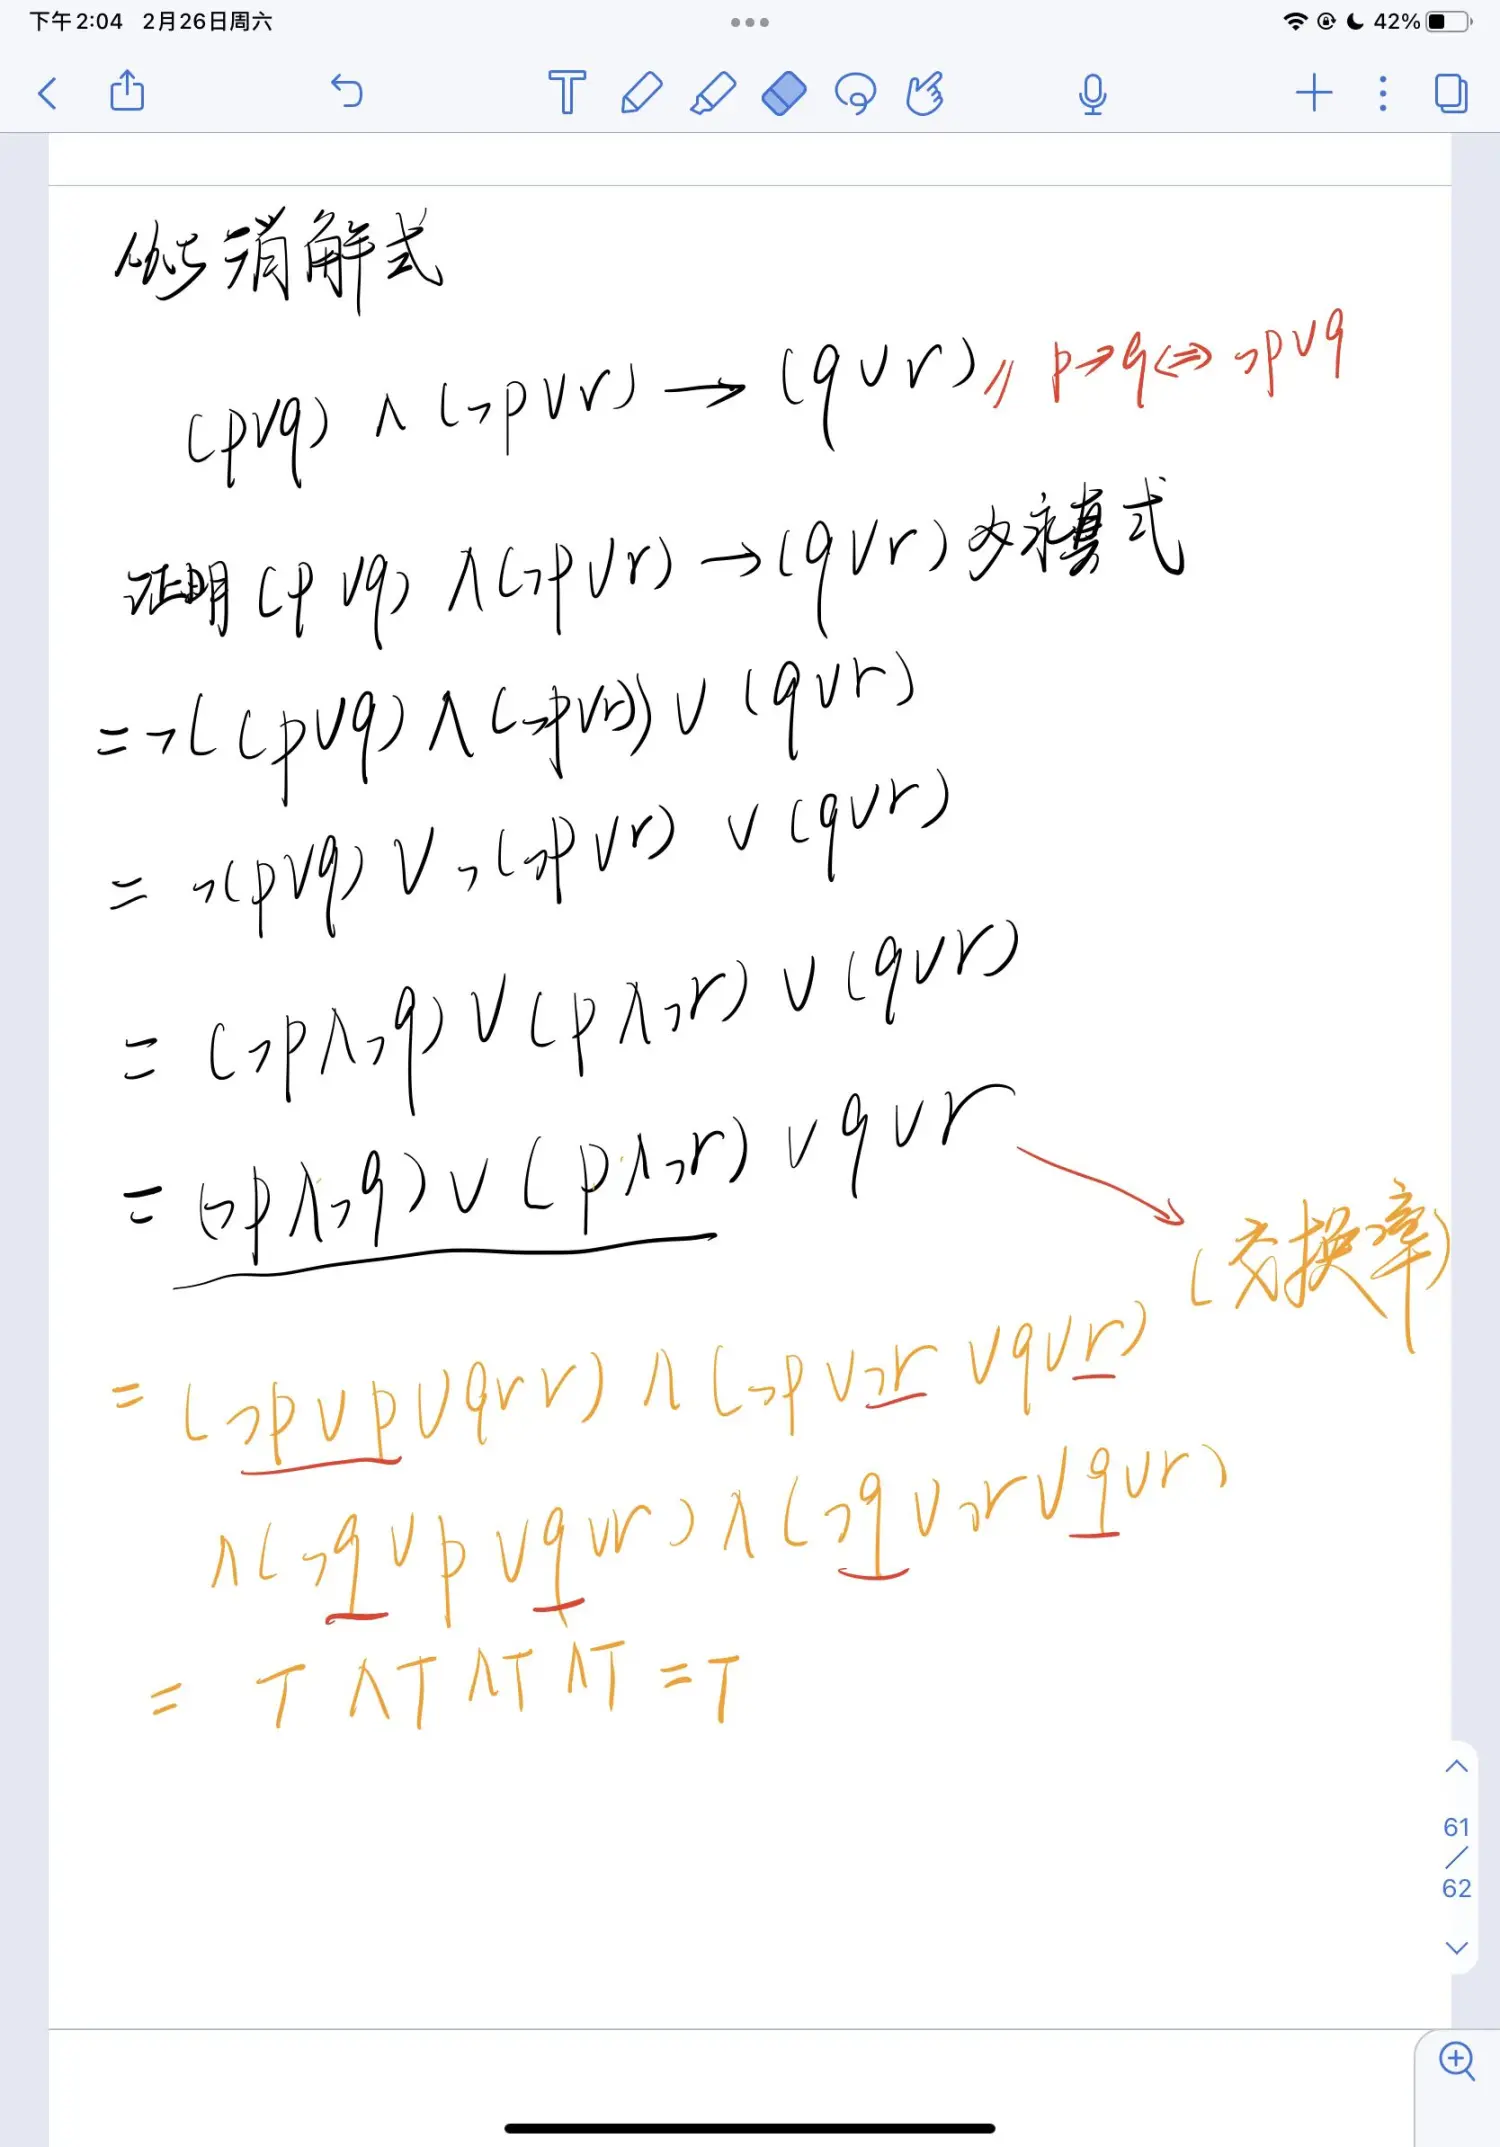 下午2:04 2月26日周六
42%
消解式
(p∨q) ∧ (¬p∨r) → (q∨r) // p→q⇔¬p∨q
证明(p∨q) ∧(¬p∨r) →(q∨r)为永真式
=¬((p∨q)∧(¬p∨r))∨(q∨r)
= ¬(p∨q)∨¬(¬p∨r) ∨(q∨r)
= (¬p∧¬q)∨(p∧¬r)∨(q∨r)
= (¬p∧¬q)∨(p∧¬r)∨q∨r
(交换率)
= (¬p∨p∨q∨r)∧(¬p∨¬r∨q∨r)
∧(¬q∨p∨q∨r)∧(¬q∨¬r∨q∨r)
= T∧T∧T∧T=T
61
/
62